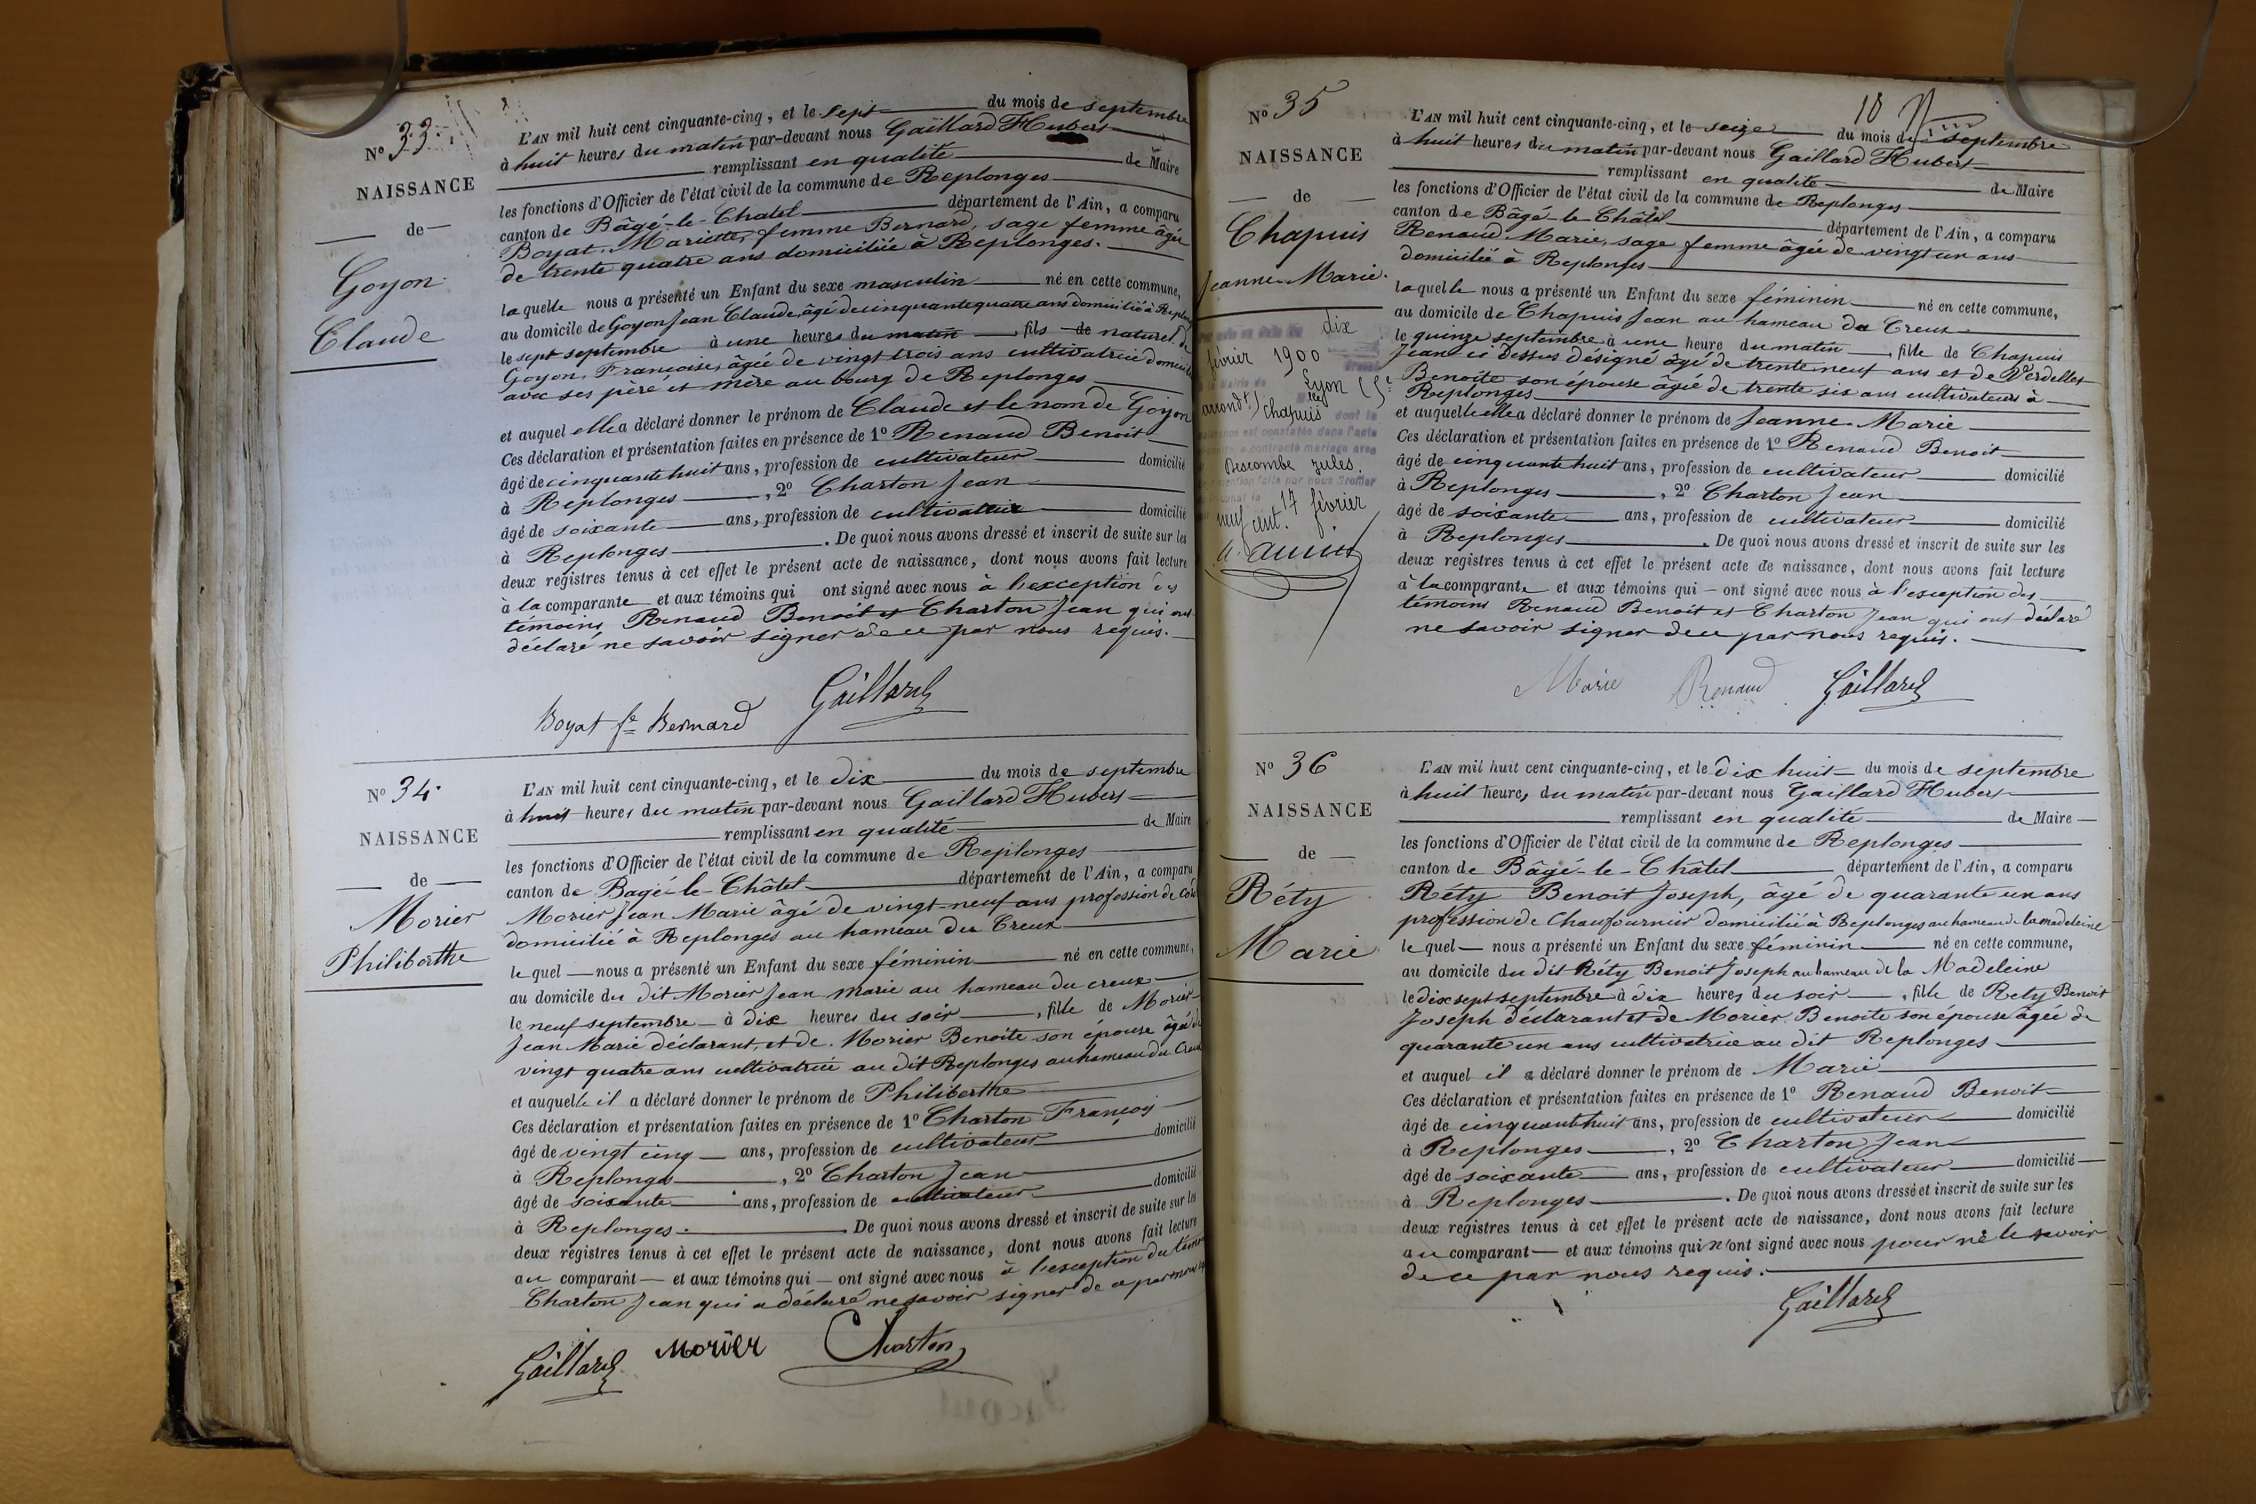 N° 33.
NAISSANCE
de
Goyon
Claude
L'AN mil huit cent cinquante-cinq, et le sept du mois de septembre
à huit heures du matin par-devant nous Gaillard Hubert
remplissant en qualité de Maire
les fonctions d'Officier de l'état civil de la commune de Replonges
canton de Bâgé-le-Chatel département de l'Ain, a comparu
Boyat Mariette, femme Bernard, sage femme âgée
de trente quatre ans domiciliée à Replonges.
laquelle nous a présenté un Enfant du sexe masculin né en cette commune,
au domicile de Goyon Jean Claude, âgé de cinquante quatre ans domicilié à
le sept septembre à une heures du matin, fils de naturel de
Goyon, Françoise, âgée de vingt trois ans cultivatrice
avec ses père et mère au bourg de Replonges
et auquel elle a déclaré donner le prénom de Claude et le nom de Goyon
Ces déclaration et présentation faites en présence de 1° Renaud Benoit
âgé de cinquante huit ans, profession de cultivateur domicilié
à Replonges, 2° Charton Jean
âgé de soixante ans, profession de cultivateur domicilié
à Replonges. De quoi nous avons dressé et inscrit de suite sur les
deux registres tenus à cet effet le présent acte de naissance, dont nous avons fait lecture
à la comparante et aux témoins qui ont signé avec nous à l'exception des
témoins Renaud Benoit et Charton Jean qui ont
déclaré ne savoir signer de ce par nous requis.
Boyat fe Bernard Gaillard
N° 34.
NAISSANCE
de
Morier
Philiberthe
L'AN mil huit cent cinquante-cinq, et le dix du mois de septembre
à huit heures du matin par-devant nous Gaillard Hubert
remplissant en qualité de Maire
les fonctions d'Officier de l'état civil de la commune de Replonges
canton de Bagé-le-Châtel département de l'Ain, a comparu
Morier Jean Marie âgé de vingt-neuf ans profession de
domicilié à Replonges au hameau du Creux
lequel nous a présenté un Enfant du sexe féminin né en cette commune,
au domicile du dit Morier Jean Marie au hameau du creux
le neuf septembre à dix heures du soir, fille de Morier
Jean Marie déclarant, et de Morier Benoite son épouse âgée de
vingt quatre ans cultivatrice au dit Replonges au hameau du Creux
et auquelle il a déclaré donner le prénom de Philiberthe
Ces déclaration et présentation faites en présence de 1° Charton François
âgé de vingt cinq ans, profession de cultivateur domicilié
à Replonges, 2° Charton Jean
âgé de soixante ans, profession de cultivateur domicilié
à Replonges. De quoi nous avons dressé et inscrit de suite sur les
deux registres tenus à cet effet le présent acte de naissance, dont nous avons fait lecture
au comparant et aux témoins qui ont signé avec nous à l'exception du
Charton Jean qui a déclaré ne savoir signer de ce par nous
Gaillard Morier Charton
18
N° 35
NAISSANCE
de
Chapuis
Jeanne-Marie.
dix
février 1900
Lyon (5e
arrondt)
Chapuis
dont la
naissance est constatée dans l'acte
a contracté mariage avec
Descombe Jules.
mention faite par nous Greffier
17 février
neuf cent.
L'AN mil huit cent cinquante-cinq, et le seize du mois de septembre
à huit heures du matin par-devant nous Gaillard Hubert
remplissant en qualité de Maire
les fonctions d'Officier de l'état civil de la commune de Replonges
canton de Bâgé-le-Châtel département de l'Ain, a comparu
Renaud Marie, sage femme âgée de vingt un ans
domiciliée à Replonges
laquelle nous a présenté un Enfant du sexe féminin né en cette commune,
au domicile de Chapuis Jean au hameau du Creux
le quinze septembre à une heure du matin, fille de Chapuis
Jean ci dessus désigné âgé de trente neuf ans et de Verdellet
Benoite son épouse âgée de trente six ans cultivateurs à
Replonges
et auquelle elle a déclaré donner le prénom de Jeanne-Marie
Ces déclaration et présentation faites en présence de 1° Renaud Benoit
âgé de cinquante huit ans, profession de cultivateur domicilié
à Replonges, 2° Charton Jean
âgé de soixante ans, profession de cultivateur domicilié
à Replonges. De quoi nous avons dressé et inscrit de suite sur les
deux registres tenus à cet effet le présent acte de naissance, dont nous avons fait lecture
à la comparante et aux témoins qui ont signé avec nous à l'exception des
témoins Renaud Benoit et Charton Jean qui ont déclaré
ne savoir signer de ce par nous requis.
Marie Renaud Gaillard
N° 36
NAISSANCE
de
Réty
Marie
L'AN mil huit cent cinquante-cinq, et le dix huit du mois de septembre
à huit heures du matin par-devant nous Gaillard Hubert
remplissant en qualité de Maire
les fonctions d'Officier de l'état civil de la commune de Replonges
canton de Bâgé-le-Châtel département de l'Ain, a comparu
Réty Benoit Joseph, âgé de quarante un ans
profession de Chaufournier domicilié à Replonges au hameau de la madeleine
lequel nous a présenté un Enfant du sexe féminin né en cette commune,
au domicile du dit Réty Benoit Joseph au hameau de la Madeleine
le dix sept septembre à dix heures du soir, fille de Rety Benoit
Joseph déclarant et de Morier Benoite son épouse âgée de
quarante un ans cultivatrice au dit Replonges
et auquel il a déclaré donner le prénom de Marie
Ces déclaration et présentation faites en présence de 1° Renaud Benoit
âgé de cinquante huit ans, profession de cultivateur domicilié
à Replonges, 2° Charton Jean
âgé de soixante ans, profession de cultivateur domicilié
à Replonges. De quoi nous avons dressé et inscrit de suite sur les
deux registres tenus à cet effet le présent acte de naissance, dont nous avons fait lecture
au comparant et aux témoins qui n'ont signé avec nous pour ne le savoir
de ce par nous requis.
Gaillard